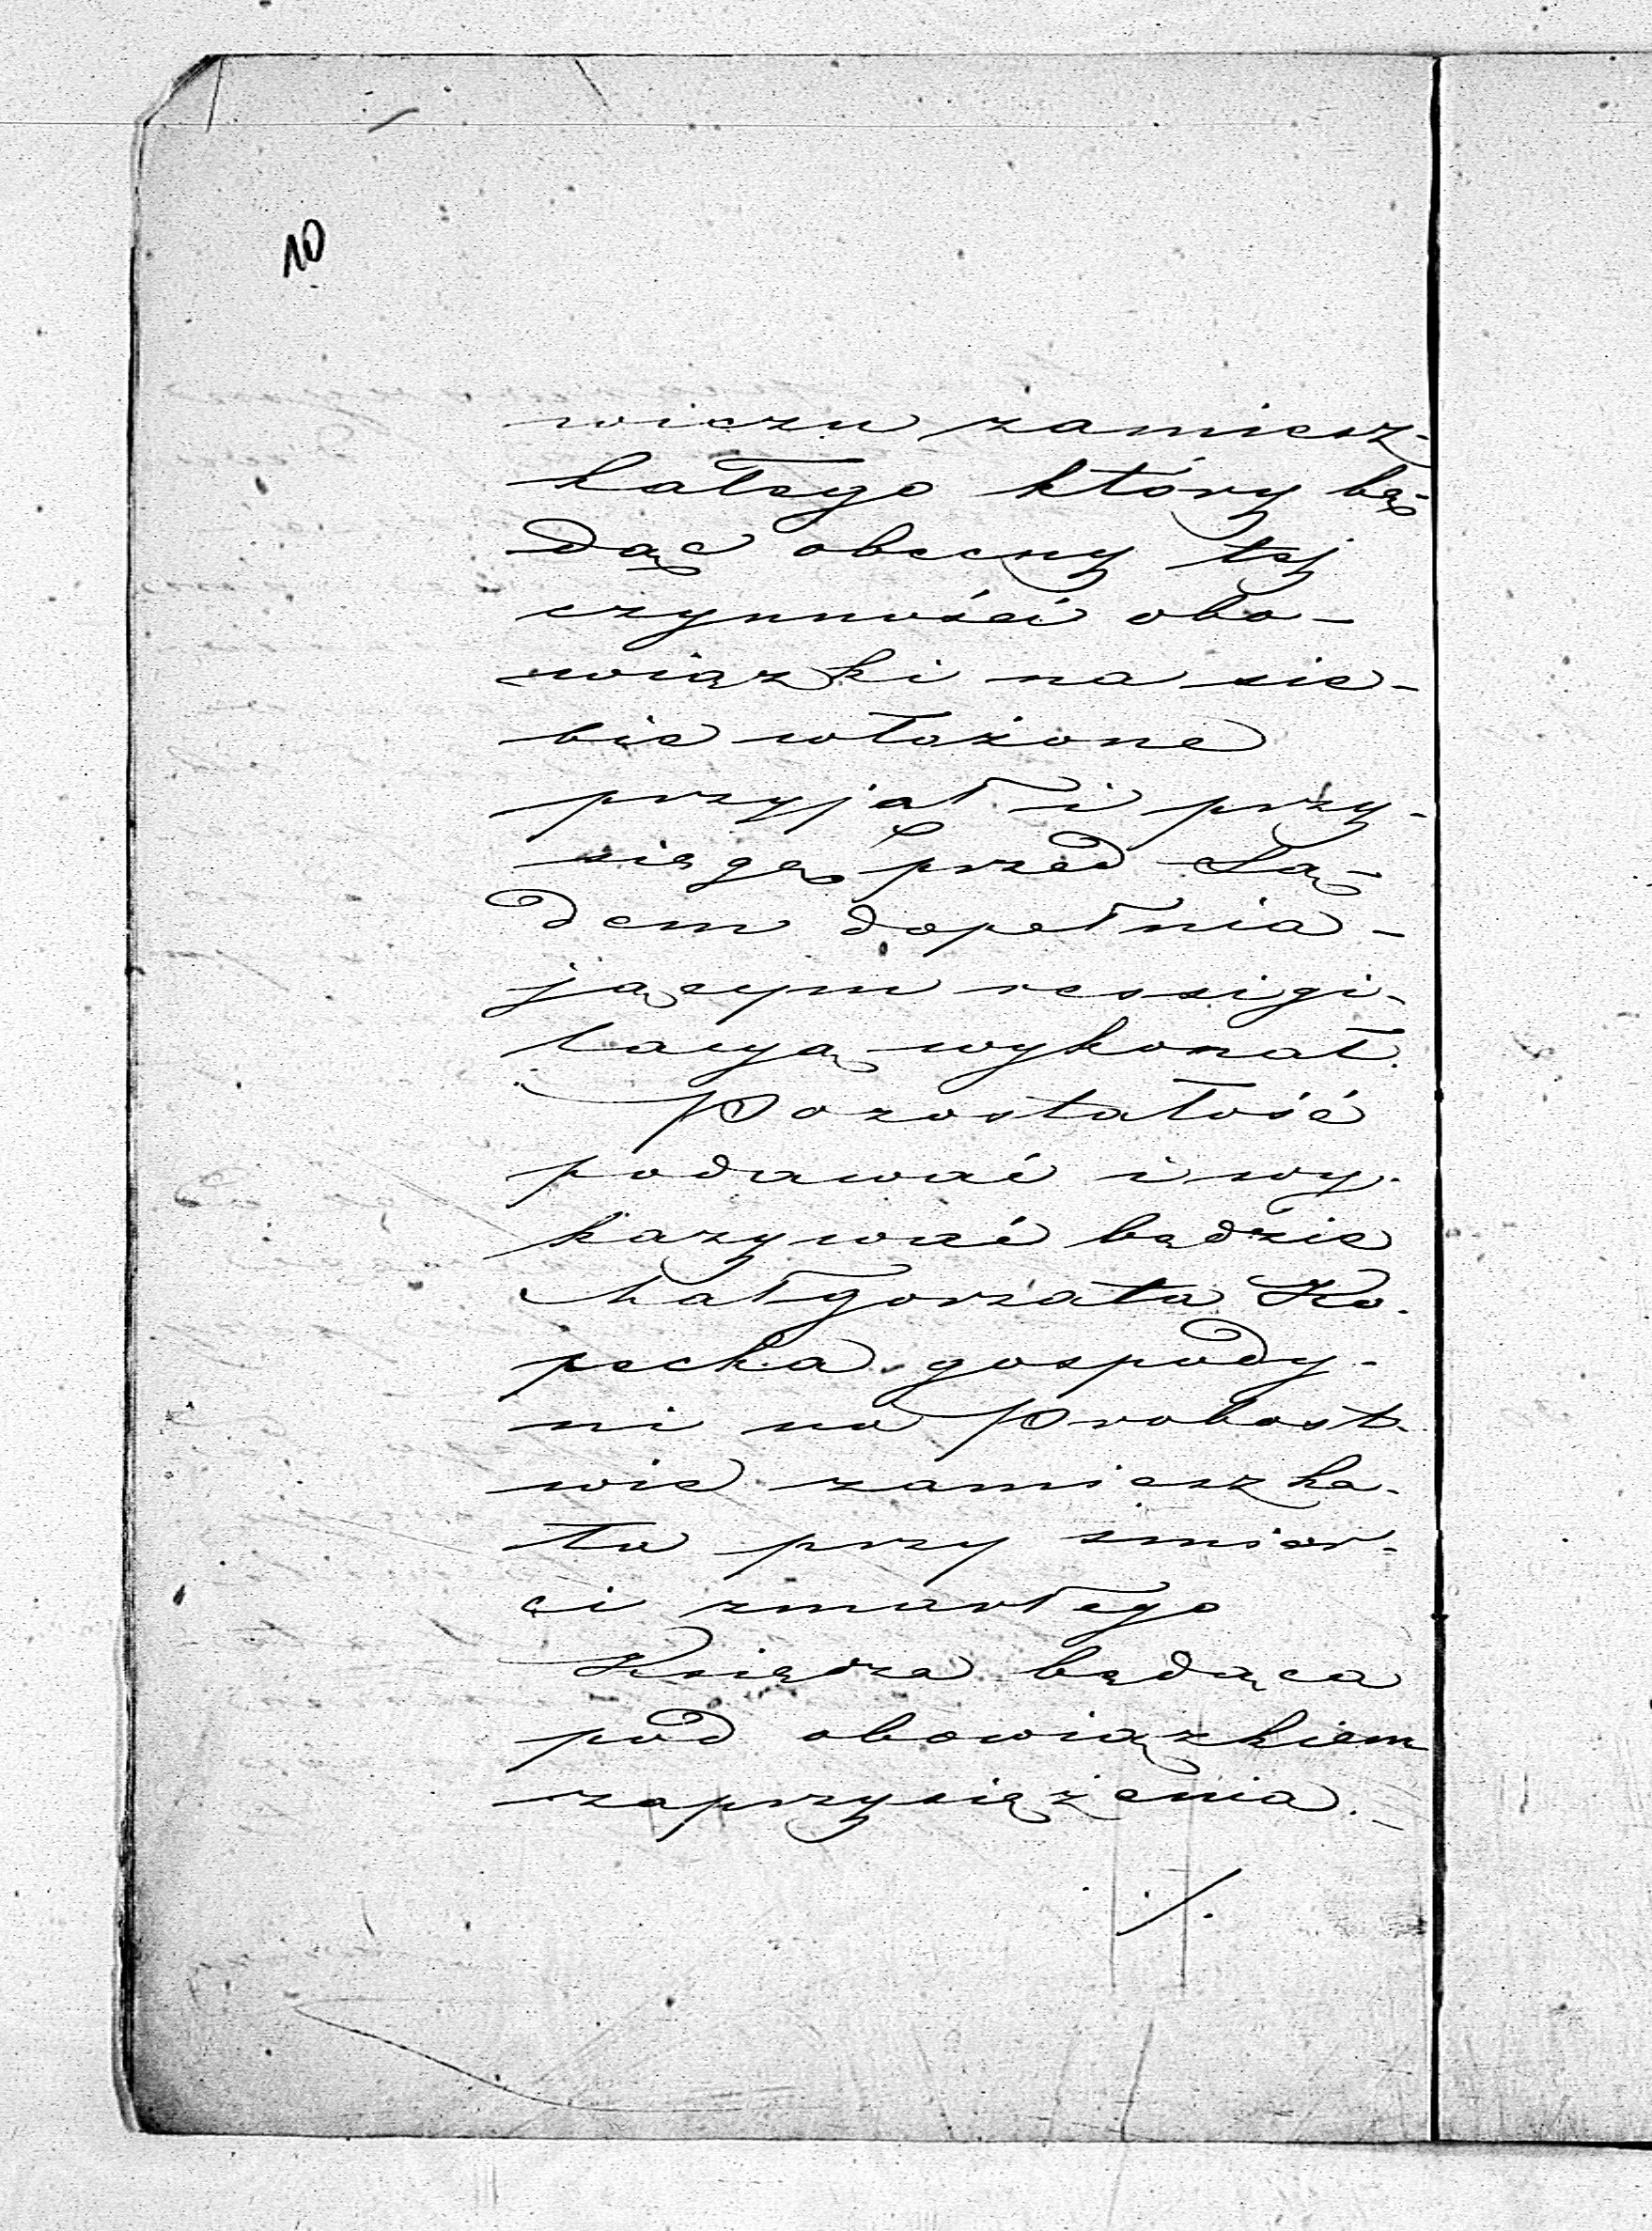 10
wiczu zamiesz-
kałego który bę-
dąc obecny tej
czynności obo-
wiązki na sie-
bie włożone
przyjął i przy-
sięgę przed Są-
dem dopełnia-
jącym ressigi-
lacyą wykonał.
Pozostałość
podawać i wy-
kazywać będzie
Małgorzata Ko-
pecka gospody-
ni na Probost-
wie zamieszka-
ła przy śmier-
ci zmarłego
Księdza będąca
pod obowiązkiem
zaprzysiężenia.-
./.